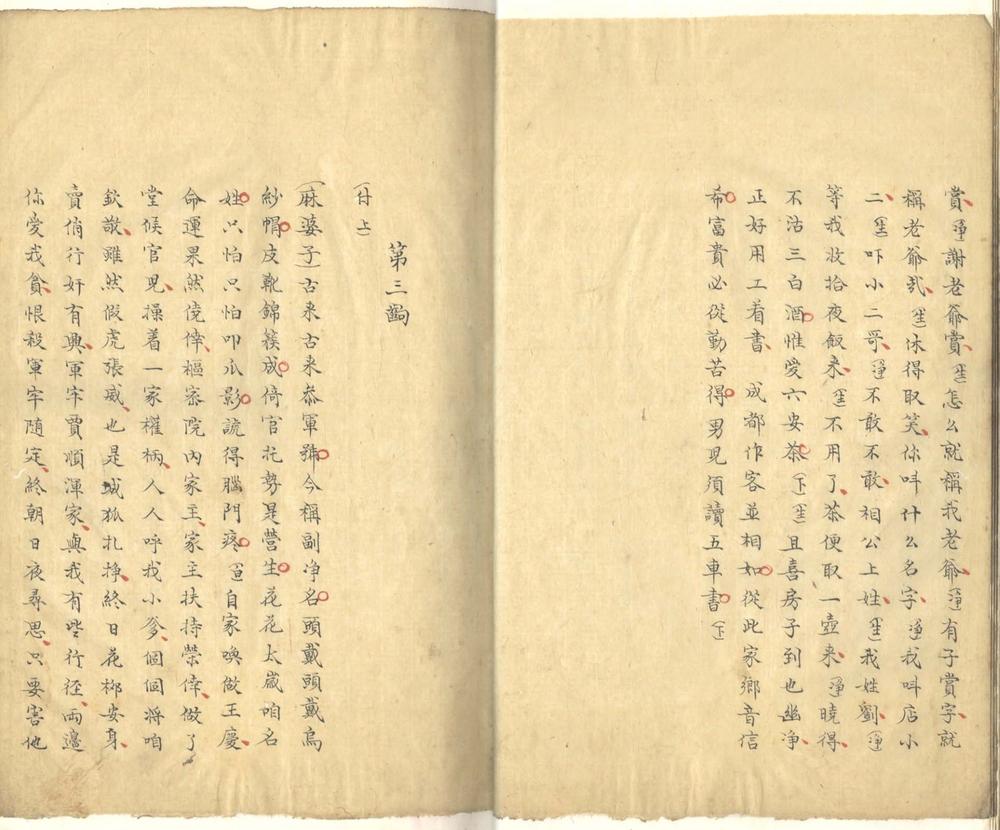 賞(淨)謝老爺賞(生)怎么就稱我老爺(淨)有子賞字就
稱老爺哉(生)休得取笑你呌什么名字(淨)我呌店小
二(生)吓小二哥(淨)不敢不敢相公上姓(生)我姓劉(淨)
等我收拾夜飯來(生)不用了茶便取一壺來(淨)曉得
不沽三白酒惟愛六安茶(下)(生)且喜房子到也幽净
正好用工看書 成都作客並相如從此家鄉音信
希富貴必從勤苦得男兒須讀五車書(下)
第三齣
(付上)
(麻婆子)古来古来叅軍號今稱副净名頭戴頭戴烏
紗帽皮靴錦簇成倚官托勢是營生花花太歲咱名
姓只怕只怕叩爪影諕得腦門疼(白)自家喚做王慶
命運果然僥倖樞宻院內家主家主扶持榮倖做了
堂候官兒操着一家權柄人人呼我小爹個個將咱
欽敬雖然假虎張威也是城狐扎掙終日花栁安身
賣俏行奸有興軍牢賈順渾家與我有些行徑兩邉
你愛我貪恨殺軍牢隨定終朝日夜尋思只要害他